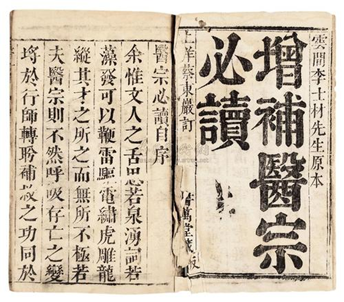 雲間李士材先生原本
增補醫宗
必讀
華蔡東嚴訂
萬堂藏板
醫宗必讀自序
余惟文人之舌思若泉湧論若
藻發可以鞭雷驅電繡虎雕龍
縱其才之所之而無所不極若
夫醫宗則不然呼吸存亡之變
埒於行師轉盼補救之功同於